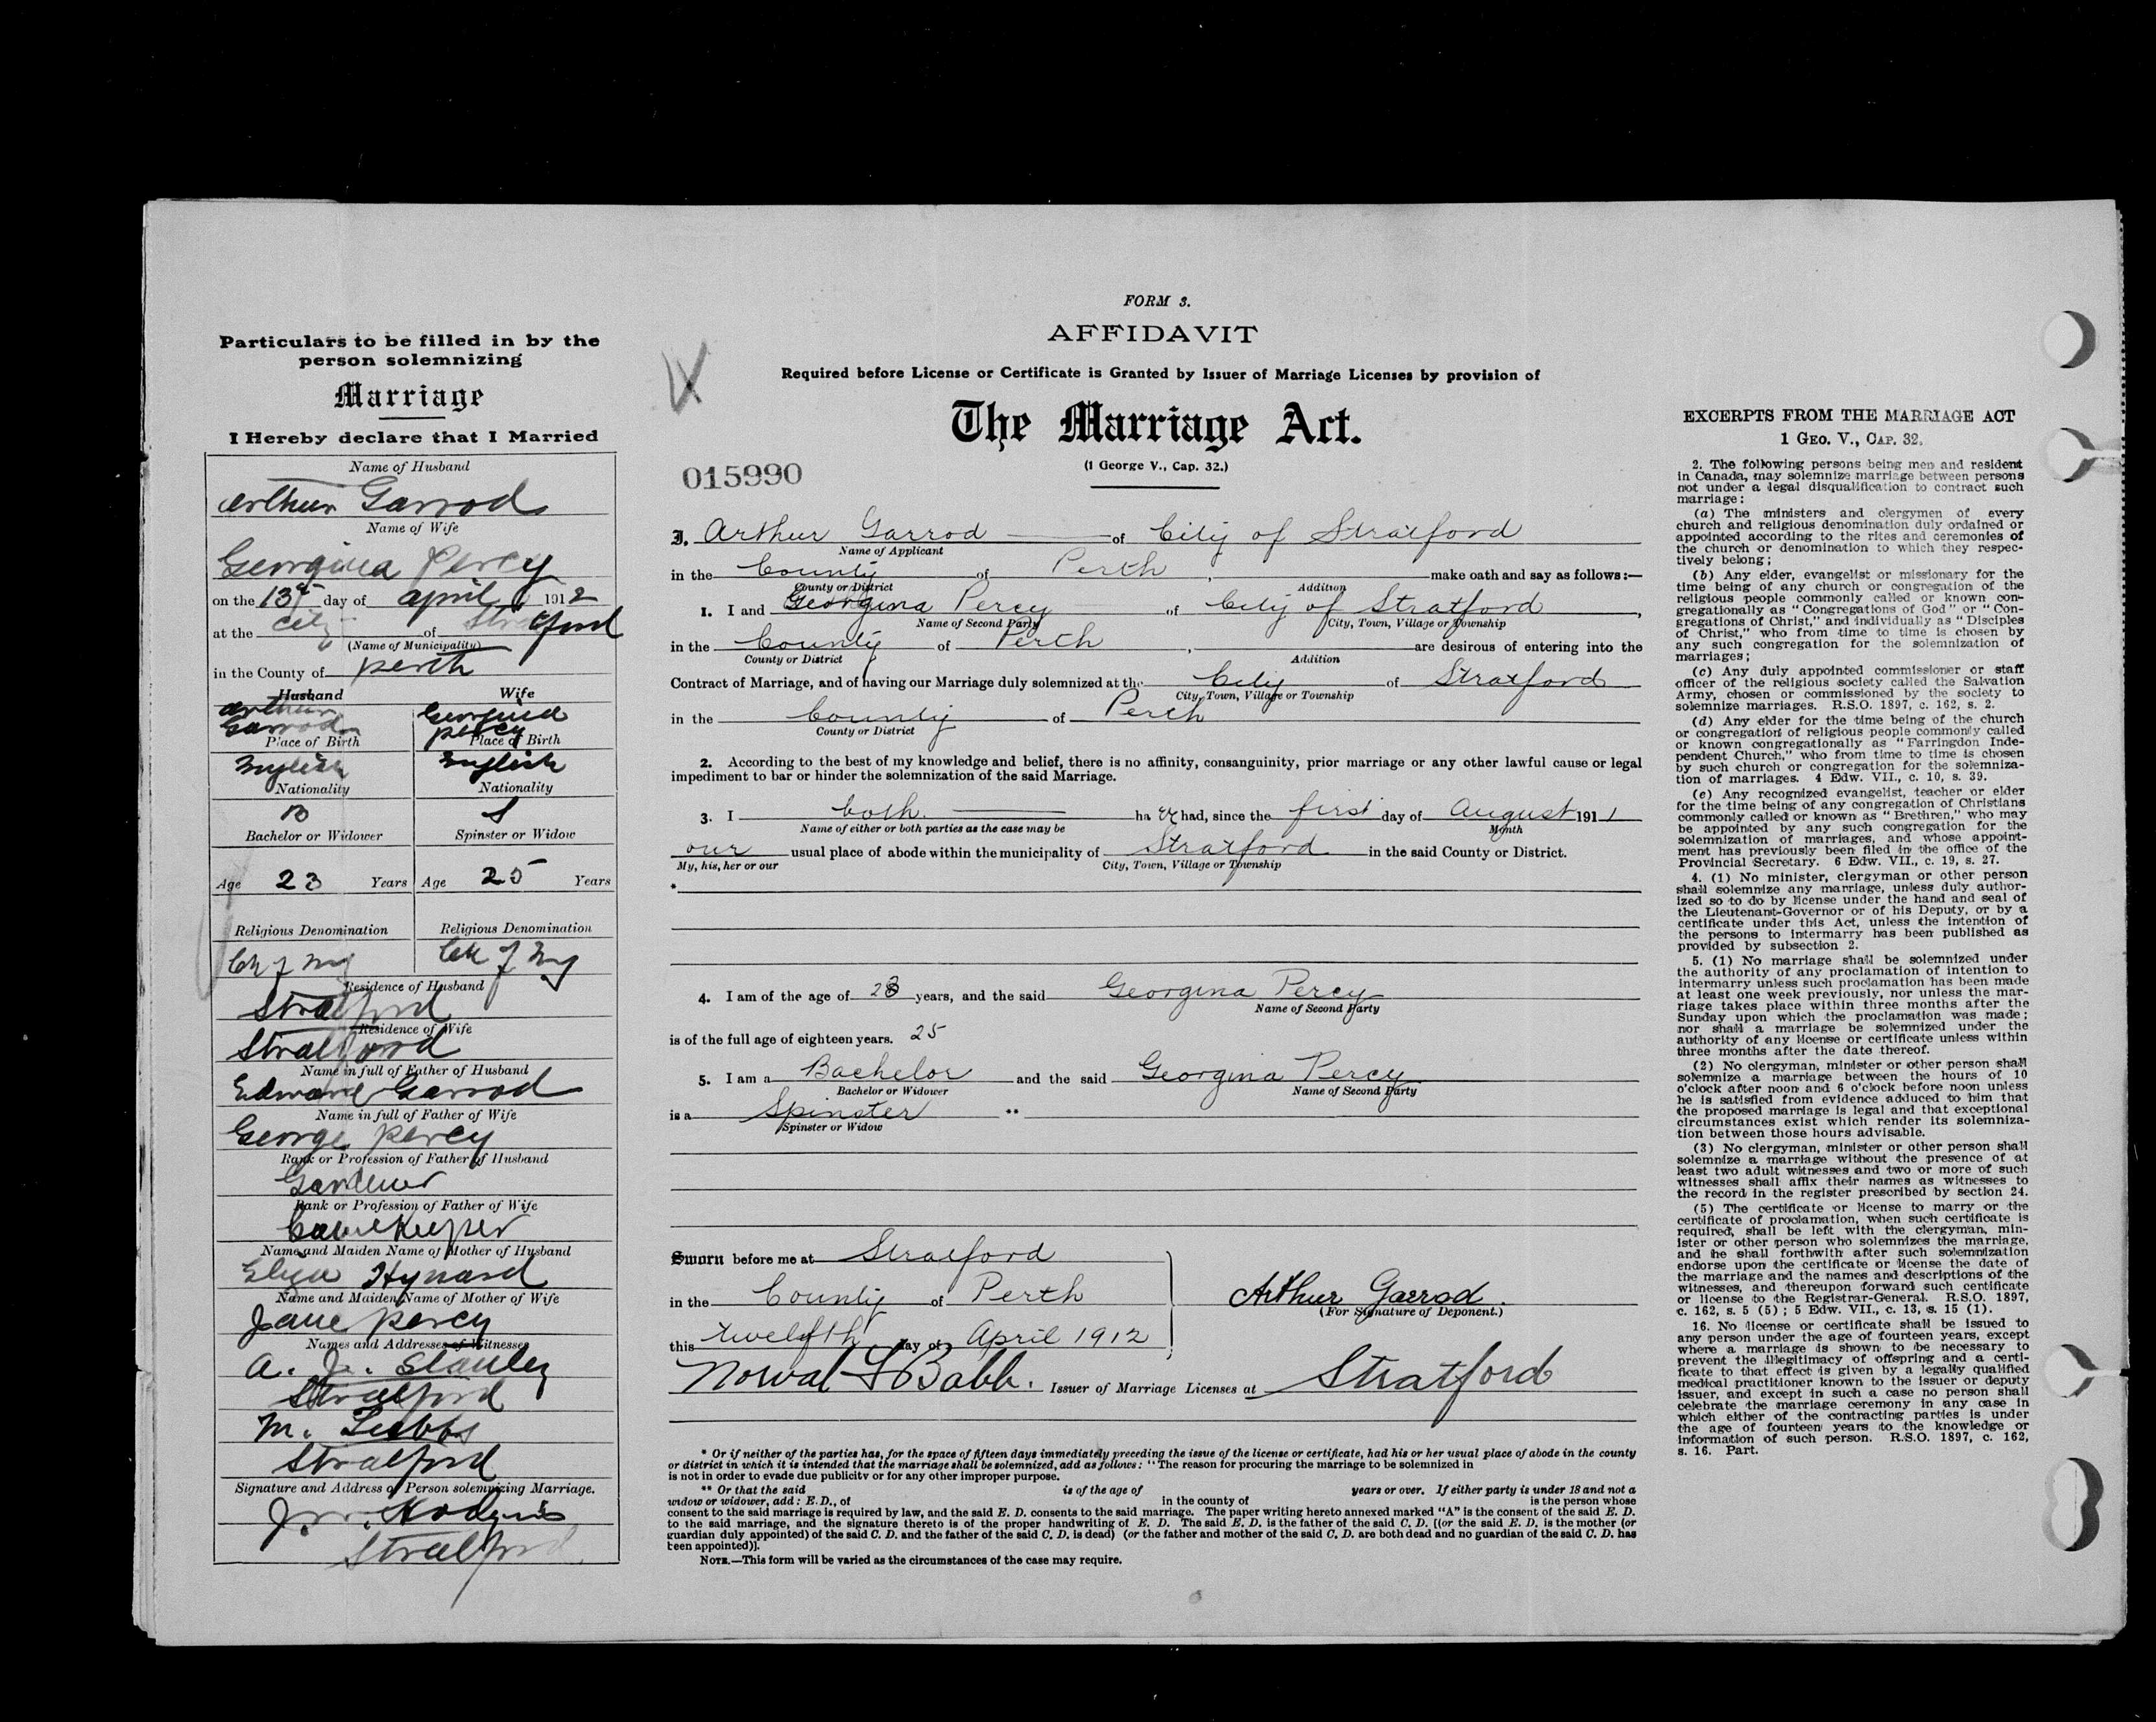 Particulars to be filled in by the
person solemnizing
Marriage
I Hereby declare that I Married
Name of Husband
Arthur Garrod
Name of Wife
Georgina Percy
on the 13th day of april 1912
at the city of Stratford
(Name of Municipality)
in the County of perth
Husband Wife
Arthur Georgina
Garrod percy
Place of Birth Place of Birth
English English
Nationality Nationality
B S
Bachelor or Widower Spinster or Widow
Age 23 Years Age 25 Years
Religious Denomination Religious Denomination
Ch of Eng Ch of Eng
Residence of Husband
Stratford
Residence of Wife
Stratford
Name in full of Father of Husband
Edward Garrod
Name in full of Father of Wife
George percy
Rank or Profession of Father of Husband
Gardener
Rank or Profession of Father of Wife
Name and Maiden Name of Mother of Husband
Eliza Hynard
Name and Maiden Name of Mother of Wife
Jane percy
Names and Addresses of Witnesses
A. J. Stanley
Stratford
M. Tubbs
Stratford
Signature and Address of Person solemnizing Marriage.
Hodgins
Stratford
FORM 3.
AFFIDAVIT
Required before License or Certificate is Granted by Issuer of Marriage Licenses by provision of
The Marriage Act.
(1 George V., Cap. 32.)
015990
I, Arthur Garrod of City of Stratford
Name of Applicant
in the County of Perth, make oath and say as follows:—
County or District Addition
1. I and Georgina Percy of City of Stratford,
Name of Second Party City, Town, Village or Township
in the County of Perth, are desirous of entering into the
County or District Addition
Contract of Marriage, and of having our Marriage duly solemnized at the City of Stratford
City, Town, Village or Township
in the County of Perth
County or District
2. According to the best of my knowledge and belief, there is no affinity, consanguinity, prior marriage or any other lawful cause or legal
impediment to bar or hinder the solemnization of the said Marriage.
3. I both ha ve had, since the first day of August 1911
Name of either or both parties as the case may be Month
our usual place of abode within the municipality of Stratford in the said County or District.
My, his, her or our City, Town, Village or Township
*
4. I am of the age of 23 years, and the said Georgina Percy
Name of Second Party
is of the full age of eighteen years. 25
5. I am a Bachelor and the said Georgina Percy
Bachelor or Widower Name of Second Party
is a Spinster **
Spinster or Widow
Sworn before me at Stratford
in the County of Perth
this twelfth day of April 1912
Arthur Garrod.
(For Signature of Deponent.)
Norval F Babb. Issuer of Marriage Licenses at Stratford
* Or if neither of the parties has, for the space of fifteen days immediately preceding the issue of the license or certificate, had his or her usual place of abode in the county
or district in which it is intended that the marriage shall be solemnized, add as follows: "The reason for procuring the marriage to be solemnized in
is not in order to evade due publicity or for any other improper purpose.
** Or that the said is of the age of years or over. If either party is under 18 and not a
widow or widower, add: E. D., of in the county of is the person whose
consent to the said marriage is required by law, and the said E. D. consents to the said marriage. The paper writing hereto annexed marked "A" is the consent of the said E. D.
to the said marriage, and the signature thereto is of the proper handwriting of E. D. The said E. D. is the father of the said C. D. [(or the said E. D. is the mother (or
guardian duly appointed) of the said C. D. and the father of the said C. D. is dead) (or the father and mother of the said C. D. are both dead and no guardian of the said C. D. has
been appointed)].
NOTE.—This form will be varied as the circumstances of the case may require.
EXCERPTS FROM THE MARRIAGE ACT
1 GEO. V., CAP. 32.
2. The following persons being men and resident
in Canada, may solemnize marriage between persons
not under a legal disqualification to contract such
marriage:
(a) The ministers and clergymen of every
church and religious denomination duly ordained or
appointed according to the rites and ceremonies of
the church or denomination to which they respec-
tively belong;
(b) Any elder, evangelist or missionary for the
time being of any church or congregation of the
religious people commonly called or known con-
gregationally as "Congregations of God" or "Con-
gregations of Christ," and individually as "Disciples
of Christ," who from time to time is chosen by
any such congregation for the solemnization of
marriages;
(c) Any duly appointed commissioner or staff
officer of the religious society called the Salvation
Army, chosen or commissioned by the society to
solemnize marriages. R.S.O. 1897, c. 162, s. 2.
(d) Any elder for the time being of the church
or congregation of religious people commonly called
or known congregationally as "Farringdon Inde-
pendent Church," who from time to time is chosen
by such church or congregation for the solemniza-
tion of marriages. 4 Edw. VII., c. 10, s. 39.
(e) Any recognized evangelist, teacher or elder
for the time being of any congregation of Christians
commonly called or known as "Brethren," who may
be appointed by any such congregation for the
solemnization of marriages, and whose appoint-
ment has previously been filed in the office of the
Provincial Secretary. 6 Edw. VII., c. 19, s. 27.
4. (1) No minister, clergyman or other person
shall solemnize any marriage, unless duly author-
ized so to do by license under the hand and seal of
the Lieutenant-Governor or of his Deputy, or by a
certificate under this Act, unless the intention of
the persons to intermarry has been published as
provided by subsection 2.
5. (1) No marriage shall be solemnized under
the authority of any proclamation of intention to
intermarry unless such proclamation has been made
at least one week previously, nor unless the mar-
riage takes place within three months after the
Sunday upon which the proclamation was made;
nor shall a marriage be solemnized under the
authority of any license or certificate unless within
three months after the date thereof.
(2) No clergyman, minister or other person shall
solemnize a marriage between the hours of 10
o'clock after noon and 6 o'clock before noon unless
he is satisfied from evidence adduced to him that
the proposed marriage is legal and that exceptional
circumstances exist which render its solemniza-
tion between those hours advisable.
(3) No clergyman, minister or other person shall
solemnize a marriage without the presence of at
least two adult witnesses and two or more of such
witnesses shall affix their names as witnesses to
the record in the register prescribed by section 24.
(5) The certificate or license to marry or the
certificate of proclamation, when such certificate is
required, shall be left with the clergyman, min-
ister or other person who solemnizes the marriage,
and he shall forthwith after such solemnization
endorse upon the certificate or license the date of
the marriage and the names and descriptions of the
witnesses, and thereupon forward such certificate
or license to the Registrar-General. R.S.O. 1897,
c. 162, s. 5 (5); 5 Edw. VII., c. 13, s. 15 (1).
16. No license or certificate shall be issued to
any person under the age of fourteen years, except
where a marriage is shown to be necessary to
prevent the illegitimacy of offspring and a certi-
ficate to that effect is given by a legally qualified
medical practitioner known to the issuer or deputy
issuer, and except in such a case no person shall
celebrate the marriage ceremony in any case in
which either of the contracting parties is under
the age of fourteen years to the knowledge or
information of such person. R.S.O. 1897, c. 162,
s. 16. Part.